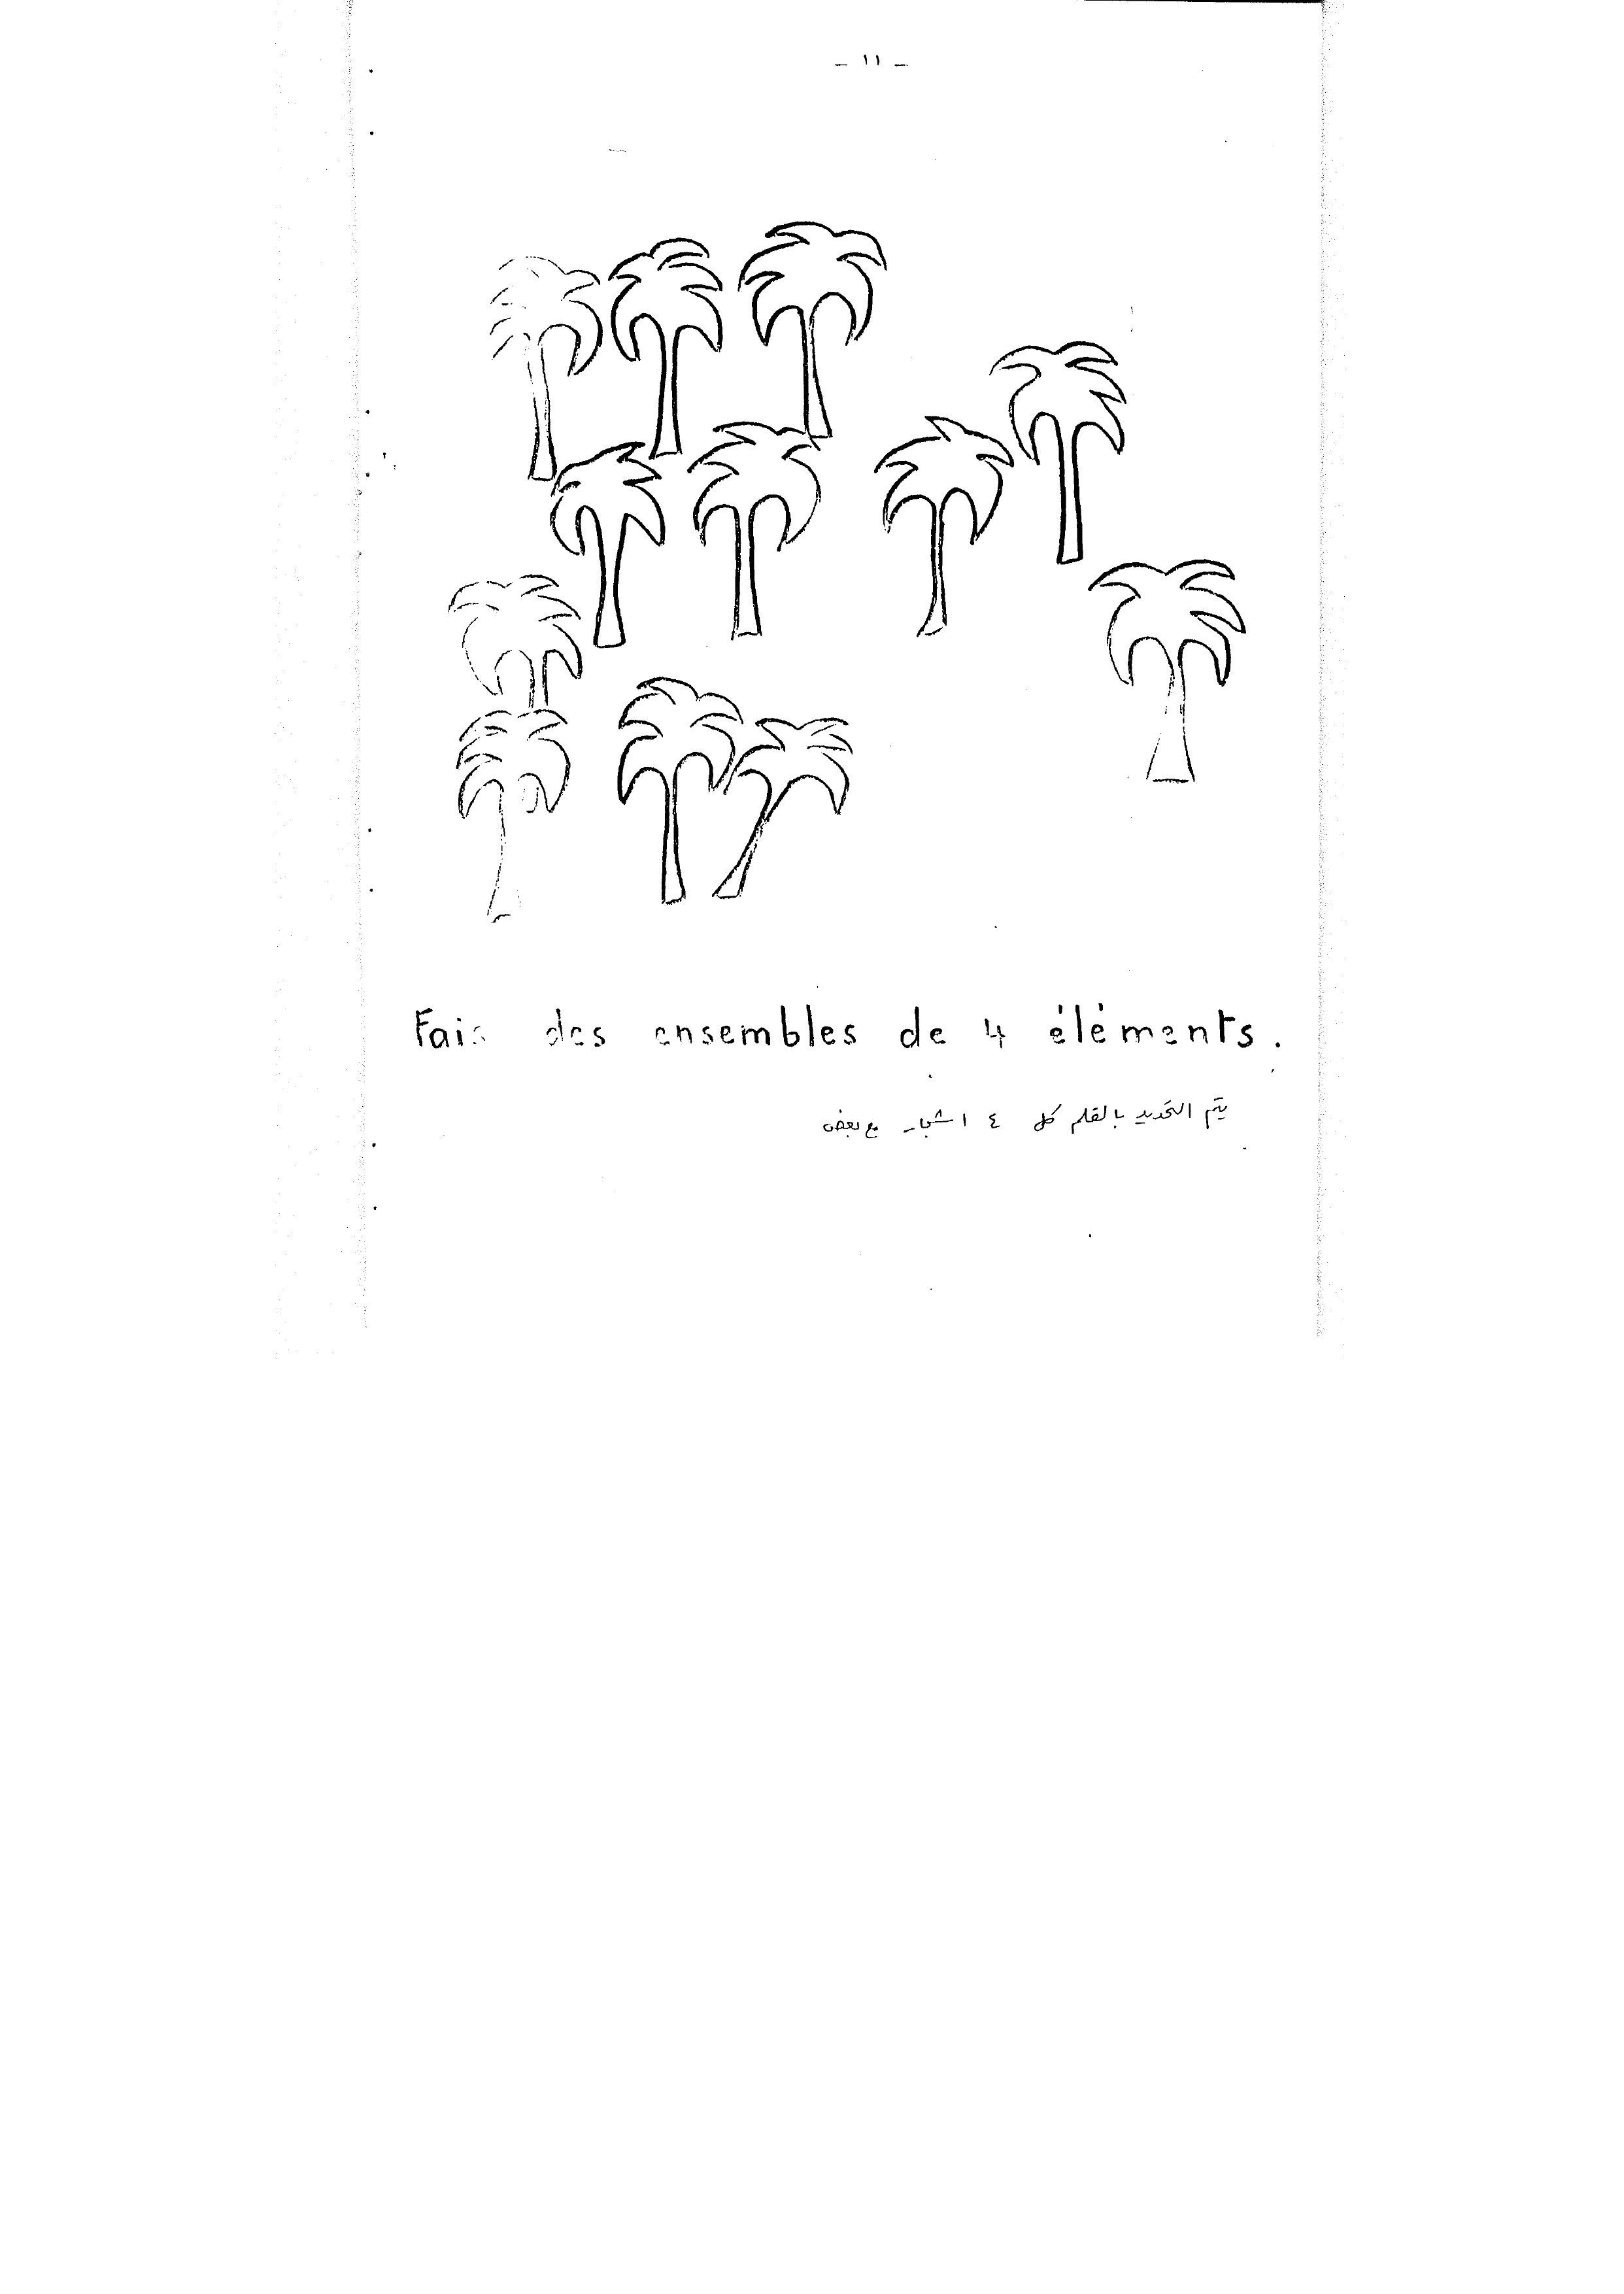 - ١١ -
Fais des ensembles de 4 éléments.
يتم التحديد بالقلم كل ٤ اشجار مع بعض